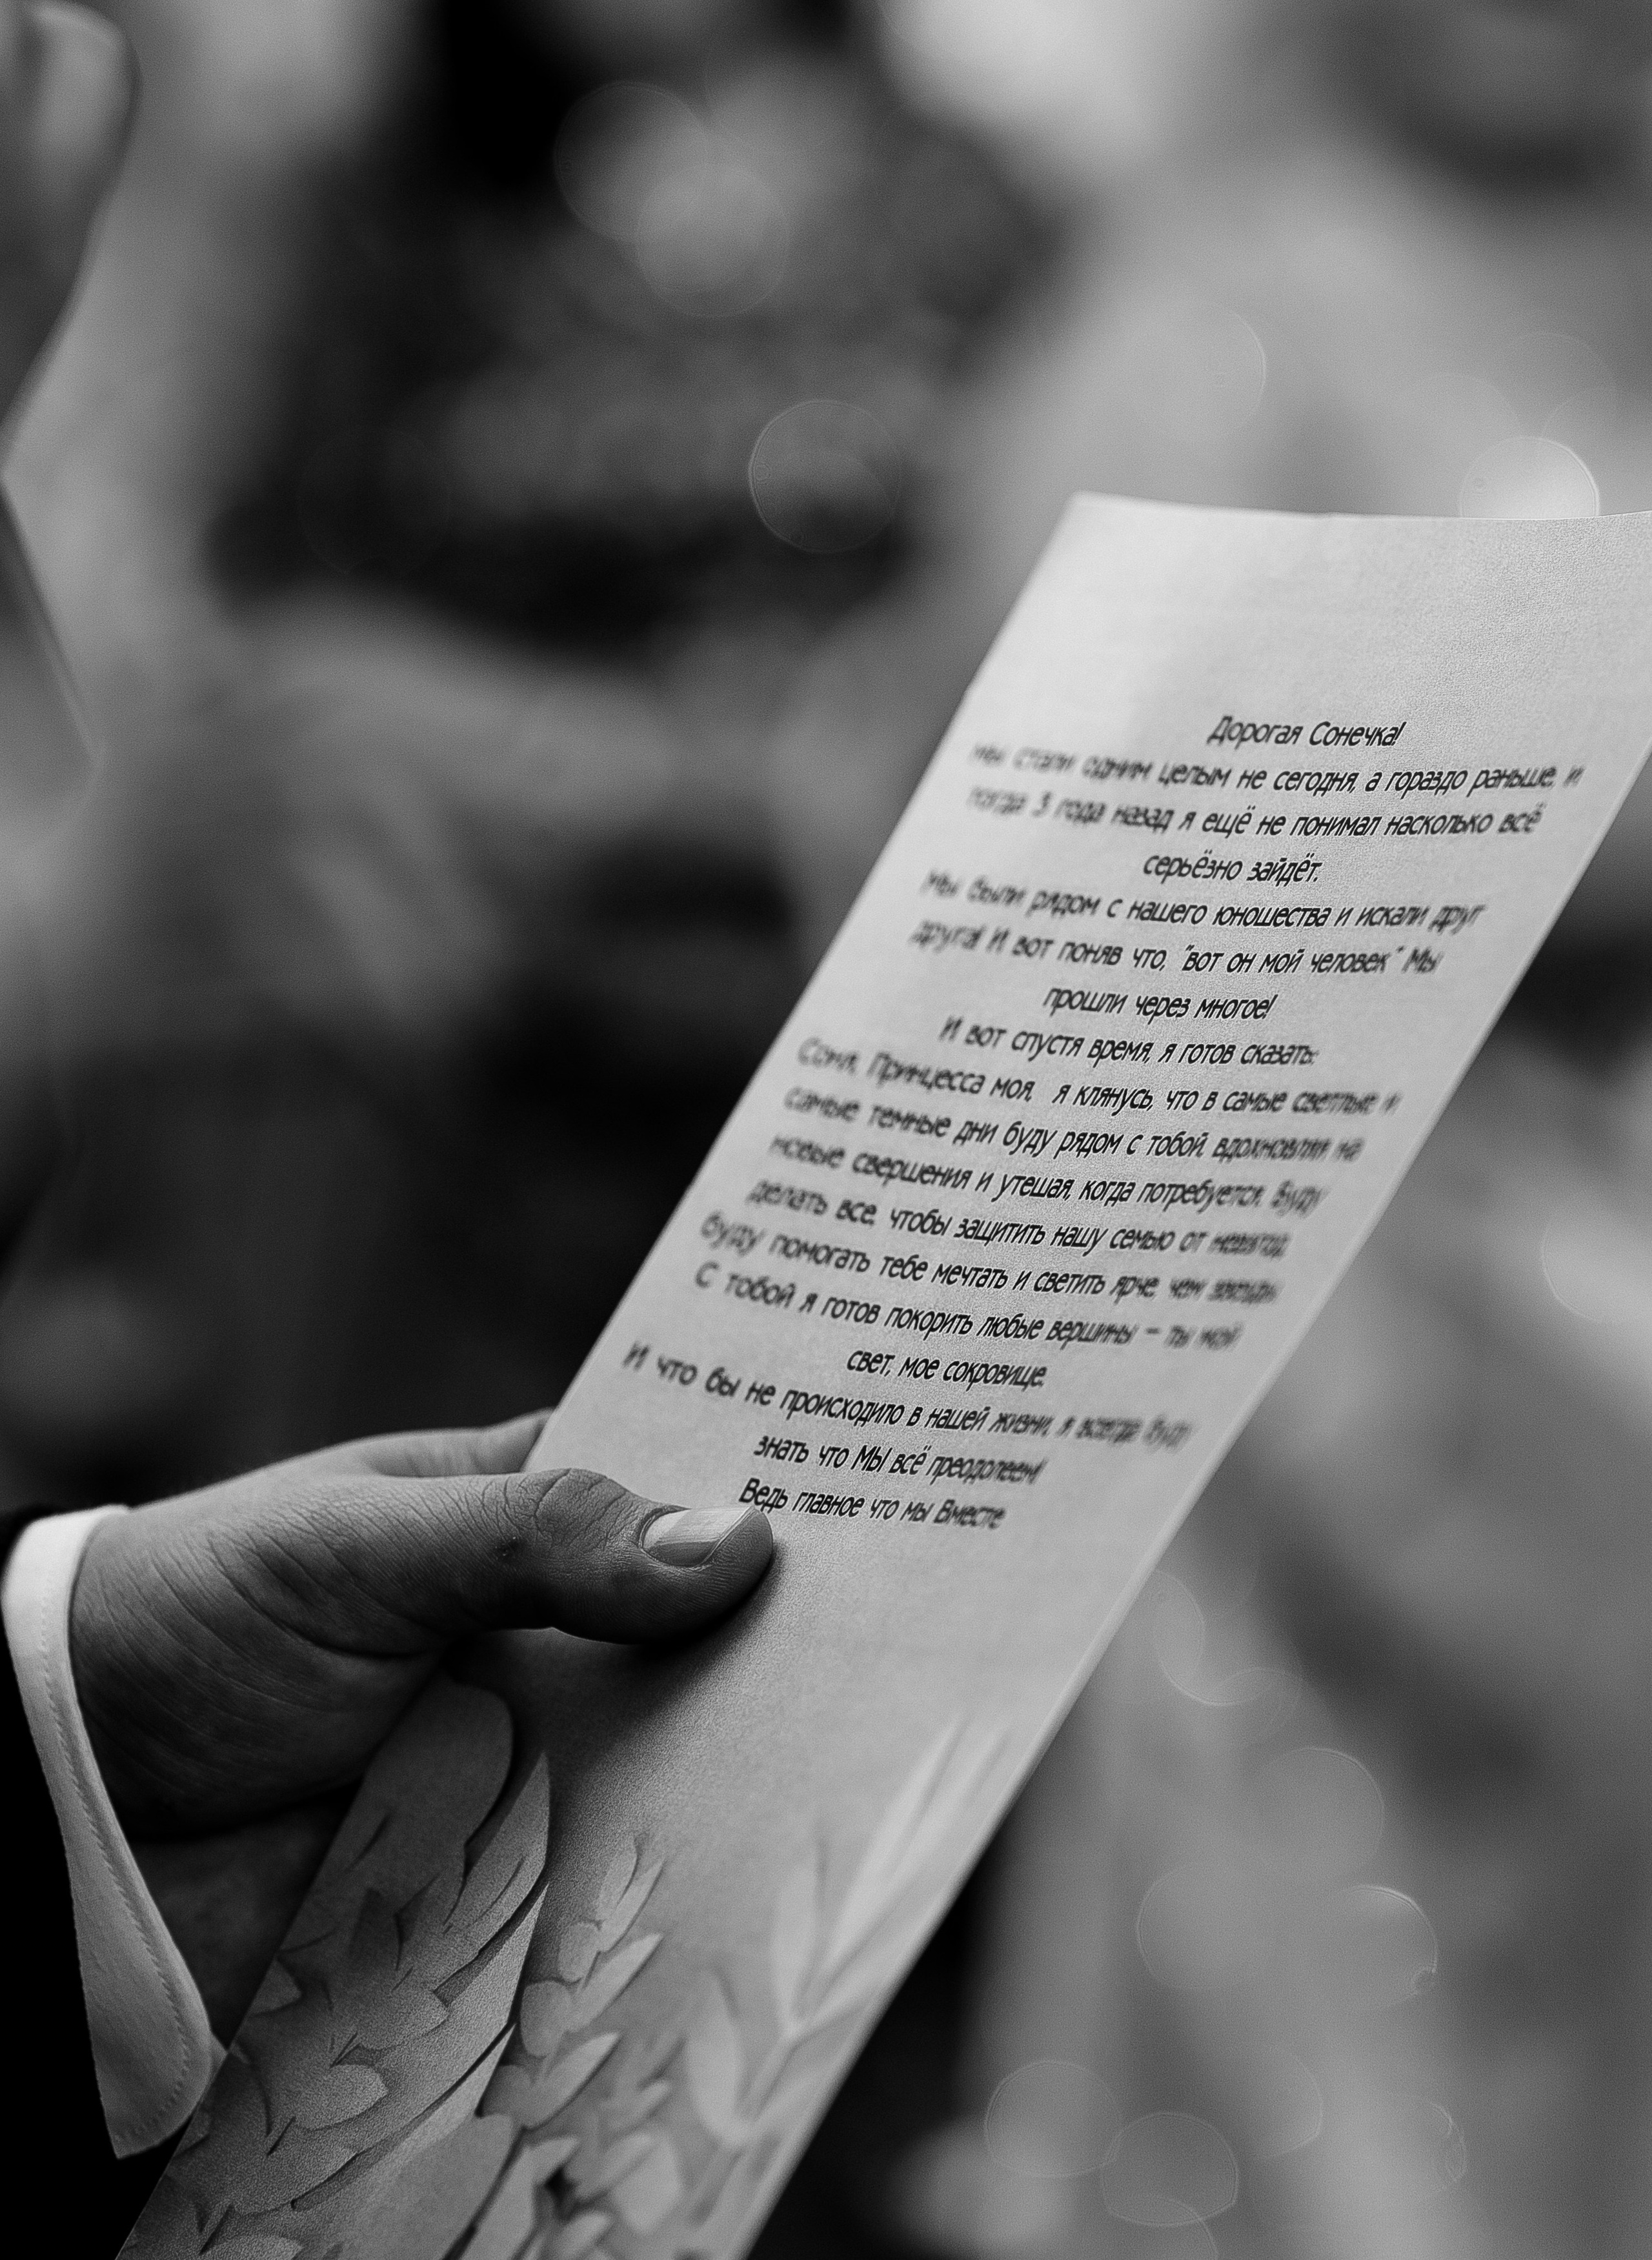 Дорогая Сонечка!
мы стали одним целым не сегодня, а гораздо раньше, и
тогда 3 года назад я ещё не понимал насколько всё
серьёзно зайдёт.
Мы были рядом с нашего юношества и искали друг
друга! И вот поняв что, "вот он мой человек" Мы
прошли через многое!
И вот спустя время, я готов сказать:
Соня, Принцесса моя, я клянусь, что в самые светлые и
самые темные дни буду рядом с тобой, вдохновляя на
новые свершения и утешая, когда потребуется. Буду
делать все, чтобы защитить нашу семью от невзгод,
буду помогать тебе мечтать и светить ярче, чем звезды.
С тобой я готов покорить любые вершины – ты мой
свет, мое сокровище.
И что бы не происходило в нашей жизни, я всегда буду
знать что МЫ всё преодолеем!
Ведь главное что мы Вместе